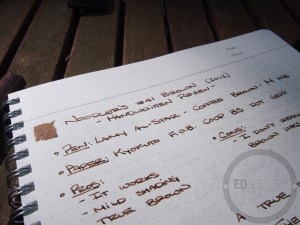 NOODLER'S #41 BROWN (2012)
- HANDWRITTEN REVIEW -
• PEN: LAMY AL-STAR - COFFEE BROWN - M NIB
• PAPER: KYOKUTO F.O.B. COOP B5 DOT GRID
• PROS:
- IT WORKS
- MILD SHADING
- TRUE BROWN
• CONS:
- I DON'T
BROWN
A TRUE
ED